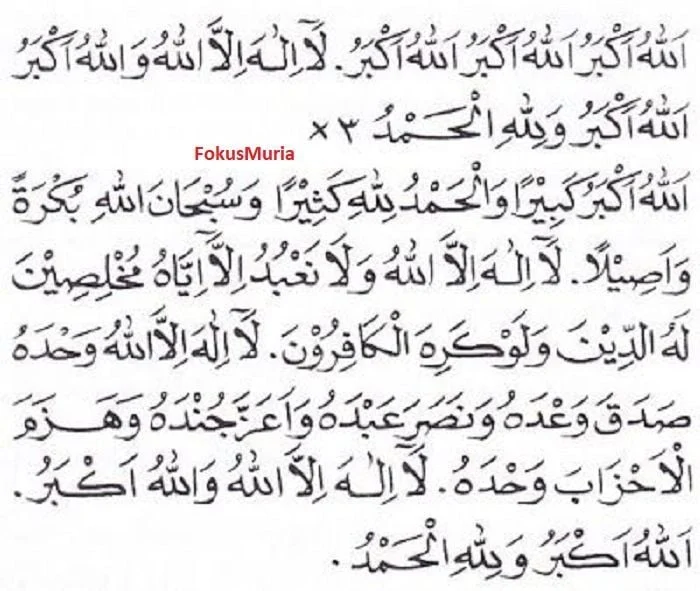 اَللهُ اَكْبَرُ اَللهُ اَكْبَرُ اَللهُ اَكْبَرُ. لَآ اِلٰـهَ اِلاَّ اللهُ وَاللهُ اَكْبَرُ
اَللهُ اَكْبَرُ وَلِلّٰهِ الْحَـمْدُ ٣ ×
FokusMuria
اَللهُ اَكْبَرُ كَبِيْرًا وَالْحَمْدُ لِلّٰهِ كَثِيْرًا وَسُبْحَانَ اللهِ بُكْرَةً
وَاَصِيْلًا. لَآ اِلٰـهَ اِلاَّ اللهُ وَلَا نَعْبُدُ اِلاَّ اِيَّاهُ مُخْلِصِيْنَ
لَهُ الدِّيْنَ وَلَوْكَرِهَ الْكَافِرُوْنَ. لَآ اِلٰهَ اِلاَّ اللهُ وَحْدَهُ
صَدَقَ وَعْدَهُ وَنَصَرَ عَبْدَهُ وَاَعَزَّ جُنْدَهُ وَهَـزَمَ
الْاَحْزَابَ وَحْدَهُ. لَآ اِلٰـهَ اِلاَّ اللهُ وَاللهُ اَكْبَرُ.
اَللهُ اَكْبَرُ وَلِلّٰهِ الْحَمْدُ.